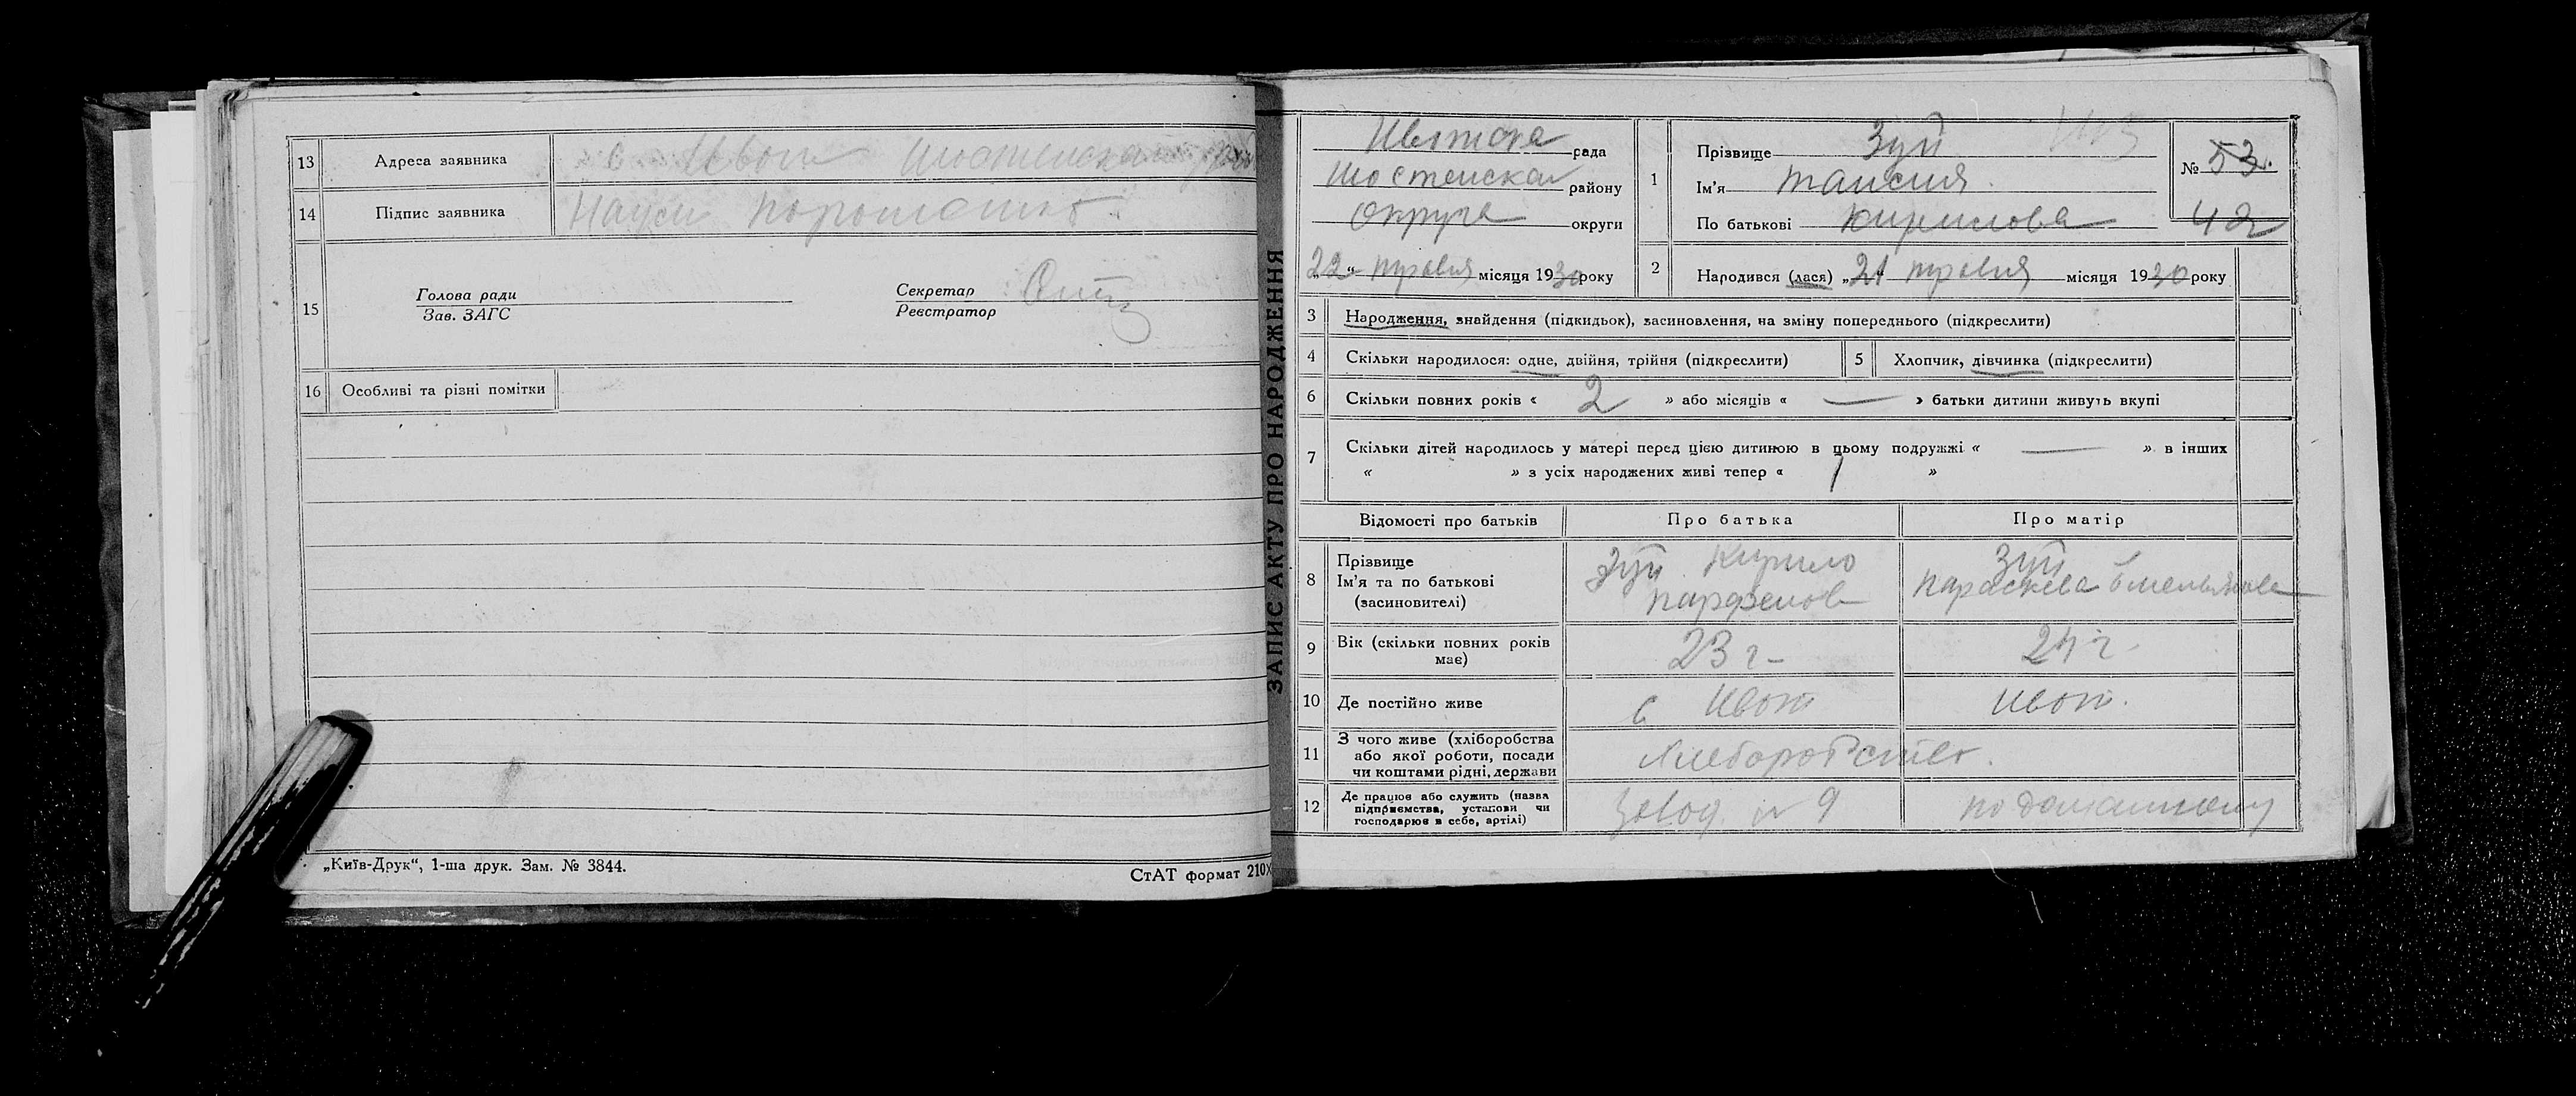 13 Адреса заявника с Ивот Шостенского
14 Підпис заявника
15 Голова ради
Зав. ЗАГС
Секретар
Реєстратор
16 Особливі та різні помітки
„Київ-Друк“, 1-ша друк. Зам. № 3844.
СтАТ формат 210Х
ЗАПИС АКТУ ПРО НАРОДЖЕННЯ
Ивотска рада
Шостенска району
Округа округи
„22“ травня місяця 1930 року
1 Прізвище Зуй
Ім’я Таисия
По батькові Кирилова
№ 53.
42
2 Народився (лася) „21 травня місяця 1930 року
3 Народження, знайдення (підкидьок), засиновлення, на зміну попереднього (підкреслити)
4 Скільки народилося: одне, двійня, трійня (підкреслити)
5 Хлопчик, дівчинка (підкреслити)
6 Скільки повних років « 2 » або місяців « — » батьки дитини живуть вкупі
7 Скільки дітей народилось у матері перед цією дитиною в цьому подружжі « — » в інших
« » з усіх народжених живі тепер « 1 »
Відомості про батьків Про батька Про матір
8 Прізвище
Ім’я та по батькові
(засиновителі)
Зуй Кирило
Парфенов
Зуй
Параскева Емельянова
9 Вік (скільки повних років
має)
23 г.
24 г.
10 Де постійно живе с Ивот Ивот.
11 З чого живе (хліборобства
або якої роботи, посади
чи коштами рідні, держави
12 Де працює або служить (назва
підприємства, установи чи
господарює в себе, артілі)
Завод № 9
по домашному